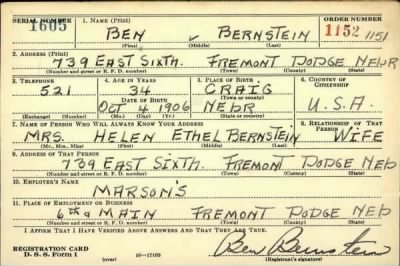 SERIAL NUMBER 1. NAME (Print) ORDER NUMBER
1605 BEN V BERNSTEIN 1152 1151
(First) (Middle) (Last)
2. ADDRESS (Print)
739 EAST SIXTH. FREMONT DODGE NEBR
(Number and street or R. F. D. number) (Town) (County) (State)
3. TELEPHONE 4. AGE IN YEARS 5. PLACE OF BIRTH 6. COUNTRY OF CITIZENSHIP
521 34 CRAIG
DATE OF BIRTH (Town or county)
OCT 4 1906 NEBR U.S.A.
(Exchange) (Number) (Mo.) (Day) (Yr.) (State or country)
7. NAME OF PERSON WHO WILL ALWAYS KNOW YOUR ADDRESS 8. RELATIONSHIP OF THAT PERSON
MRS. HELEN ETHEL BERNSTEIN WIFE
(Mr., Mrs., Miss) (First) (Middle) (Last)
9. ADDRESS OF THAT PERSON
739 EAST SIXTH. FREMONT DODGE NEB
(Number and street or R. F. D. number) (Town) (County) (State)
10. EMPLOYER'S NAME
MARSON'S
11. PLACE OF EMPLOYMENT OR BUSINESS
6th & MAIN FREMONT DODGE NEB
(Number and street or R. F. D. number) (Town) (County) (State)
I AFFIRM THAT I HAVE VERIFIED ABOVE ANSWERS AND THAT THEY ARE TRUE.
REGISTRATION CARD
D. S. S. Form 1 (over) 16—17105 Ben Bernstein
(Registrant's signature)